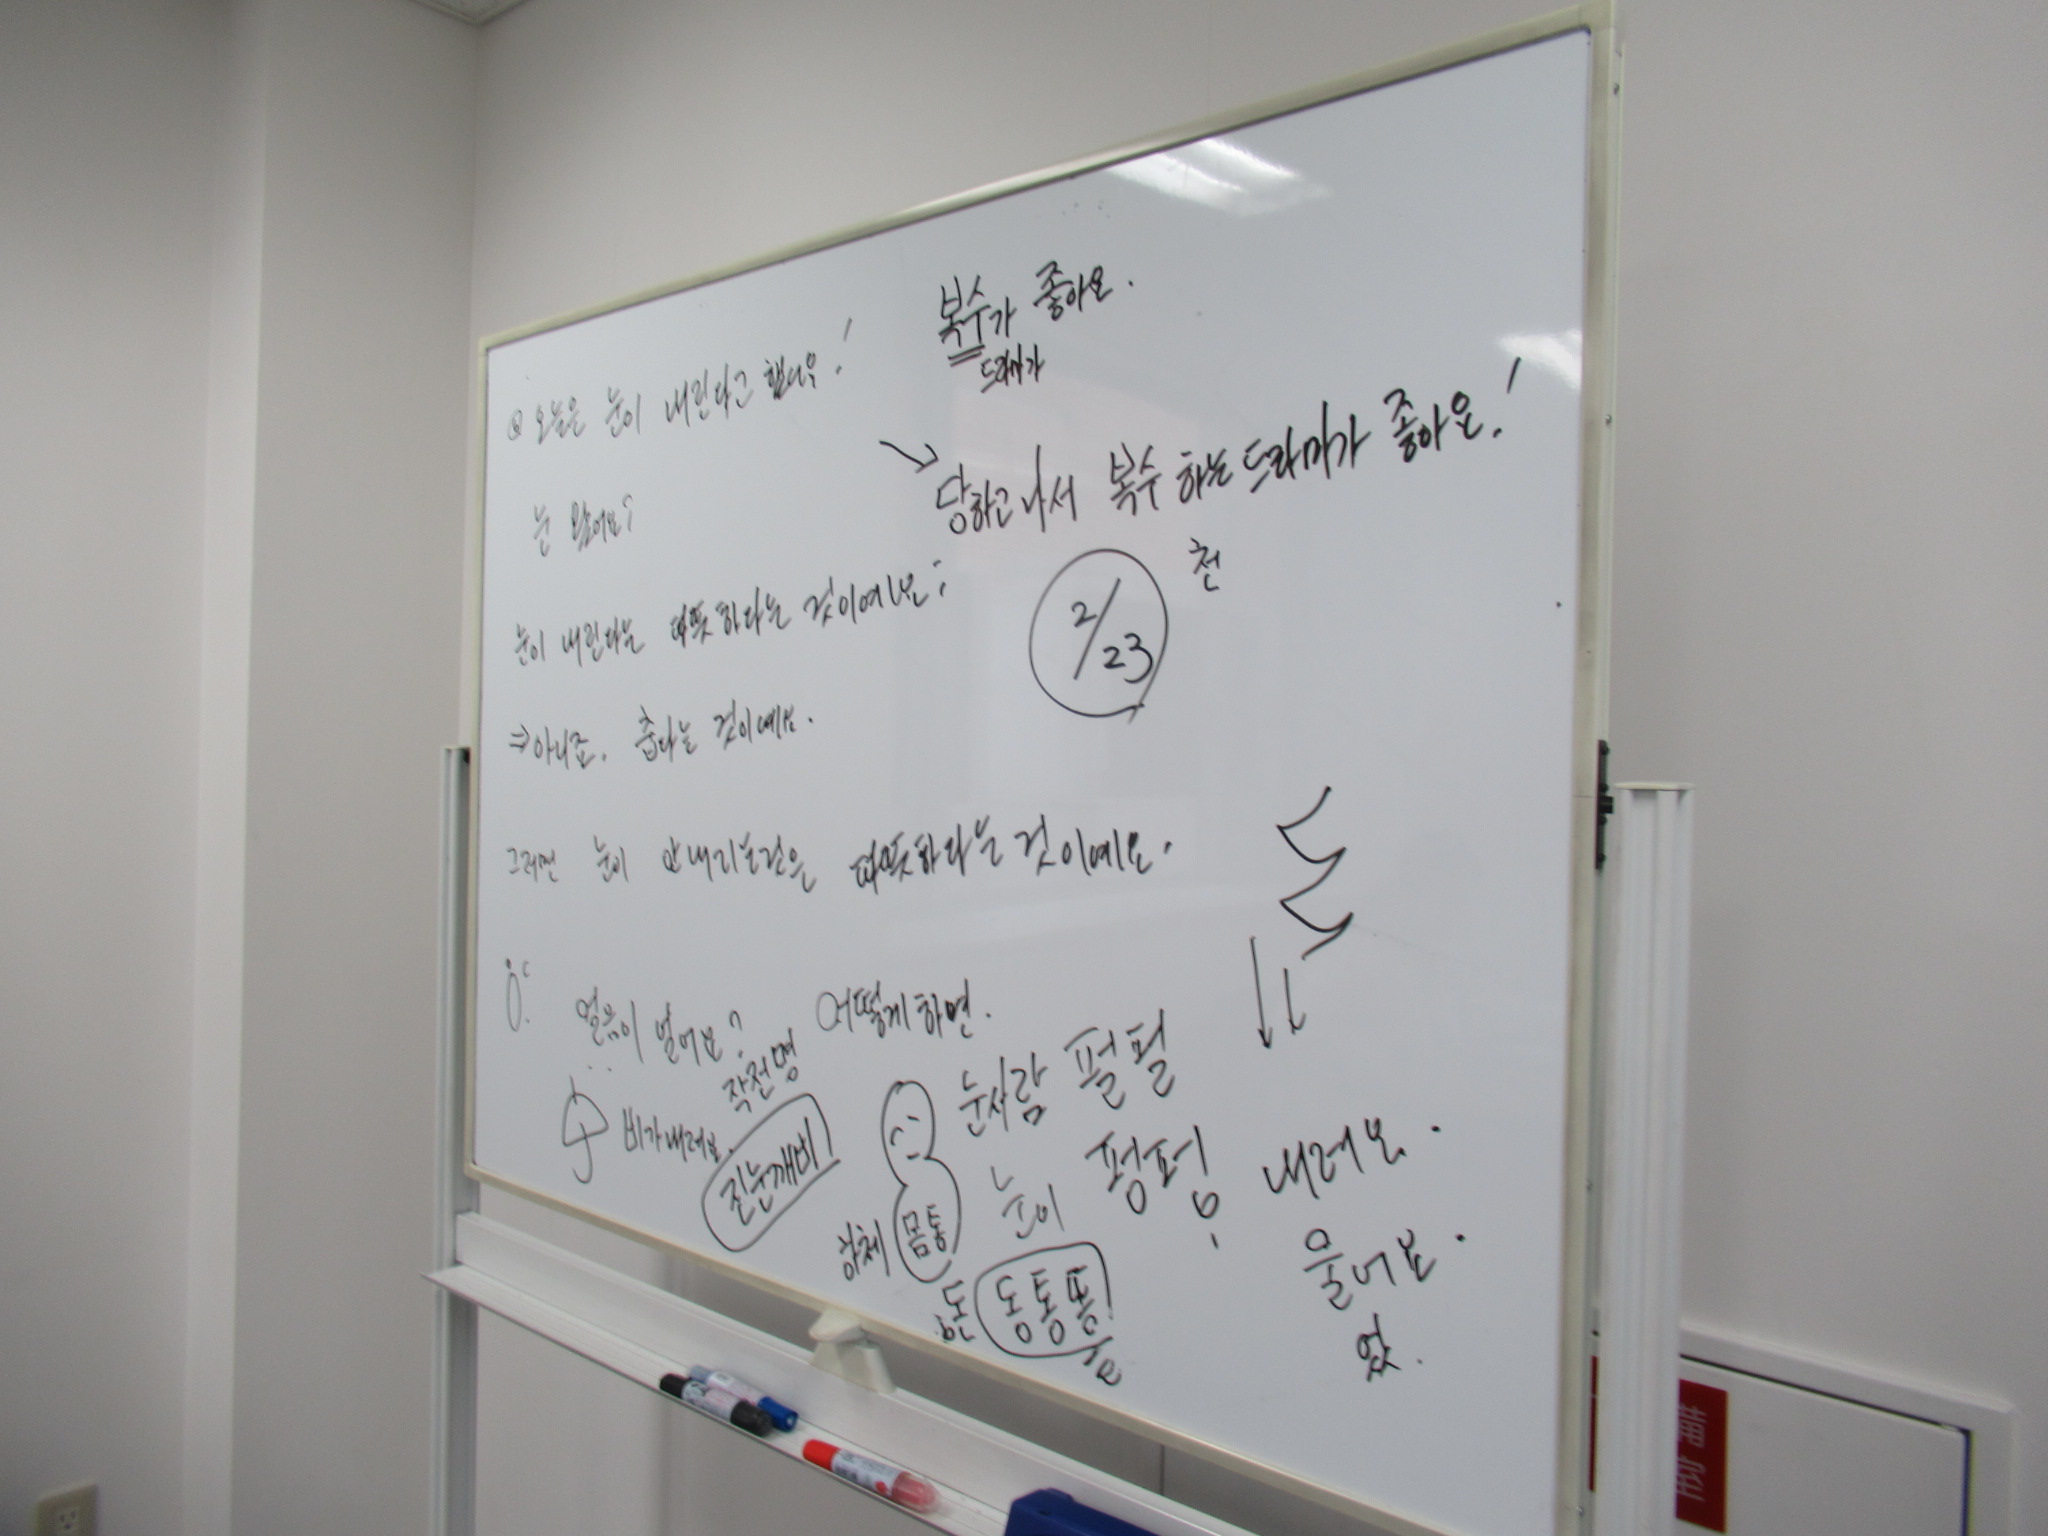 오늘은 눈이 내린다고 했나요!
눈 왔어요?
눈이 내린다는 따뜻하다는 것이에요?
⇒아니죠. 춥다는 것이에요.
그러면 눈이 안내리는것은 따뜻하다는 것이예요.
얼음이 얼어요? 어떻게하면.
비가내려요.
작전명
진눈깨비
복수가 좋아요.
드라마가
당하고나서 복수 하는 드라마가 좋아요!
천
2/23
눈사람 펄펄
눈이 펑펑 내려요.
몸통
동통통
울어요.
었.